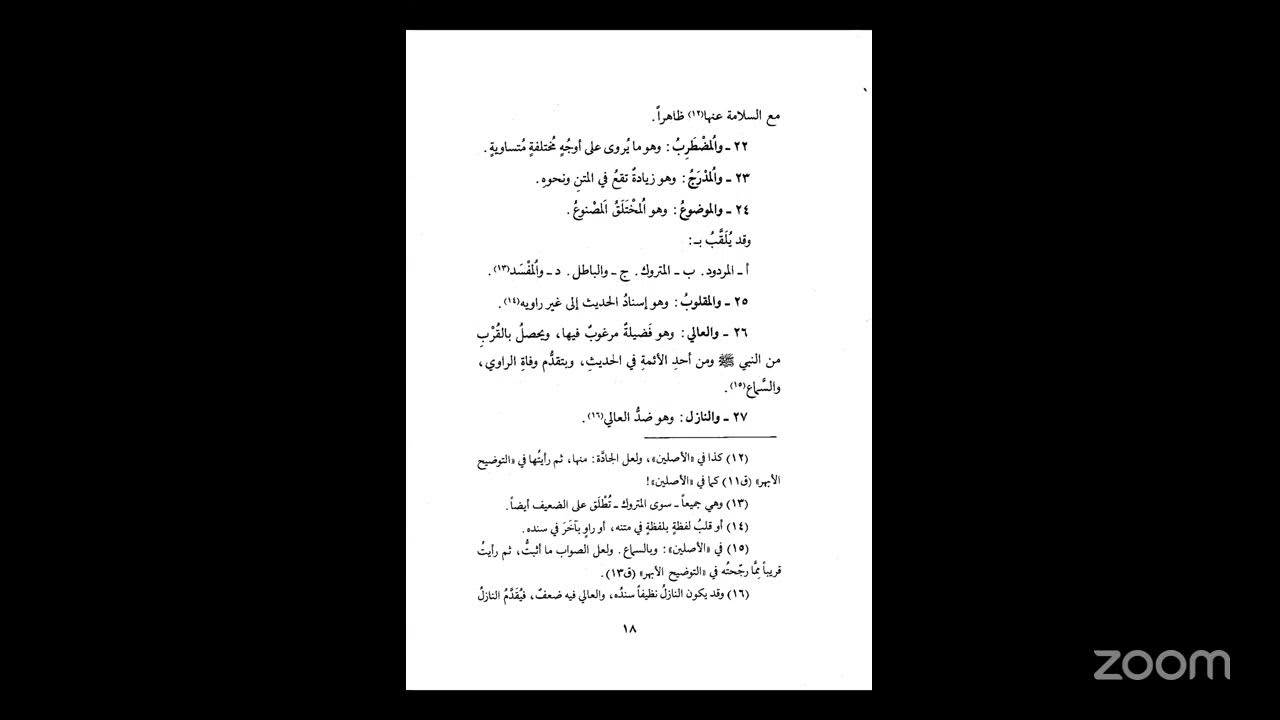 مع السلامة عنها(١٢) ظاهراً.
٢٢ ـ والمُضْطَرِبُ: وهو ما يُروى على أوجُهٍ مُختلفةٍ مُتساويةٍ.
٢٣ ـ والمُدْرَجُ: وهو زيادةٌ تقعُ في المتنِ ونحوِهِ.
٢٤ ـ والموضوعُ: وهو المُخْتَلَقُ المَصْنوعُ.
وقد يُلَقَّبُ بـ:
أ ـ المردود. ب ـ المتروك. ج ـ والباطل. د ـ والمُفْسَد(١٣).
٢٥ ـ والمقلوبُ: وهو إسنادُ الحديث إلى غير راويه(١٤).
٢٦ ـ والعالي: وهو فَضيلةٌ مرغوبٌ فيها، ويحصلُ بالقُرْبِ
من النبي ﷺ ومن أحدِ الأئمةِ في الحديثِ، وبتقدُّم وفاةِ الراوي،
والسَّماع(١٥).
٢٧ ـ والنازل: وهو ضدُّ العالي(١٦).
(١٢) كذا في «الأصلين»، ولعل الجادَّة: منها، ثم رأيتُها في «التوضيح
الأبهر» (ق١١) كما في «الأصلين»!
(١٣) وهي جميعاً ـ سوى المتروك ـ تُطْلَق على الضعيف أيضاً.
(١٤) أو قلبُ لفظةٍ بلفظةٍ في متنه، أو راوٍ بآخَرَ في سنده.
(١٥) في «الأصلين»: وبالسماع. ولعل الصواب ما أثبتُّ، ثم رأيتُ
قريباً مِمَّا رجّحتُه في «التوضيح الأبهر» (ق١٣).
(١٦) وقد يكون النازلُ نظيفاً سندُه، والعالي فيه ضعفٌ، فيُقَدَّمُ النازلُ
١٨
zoom